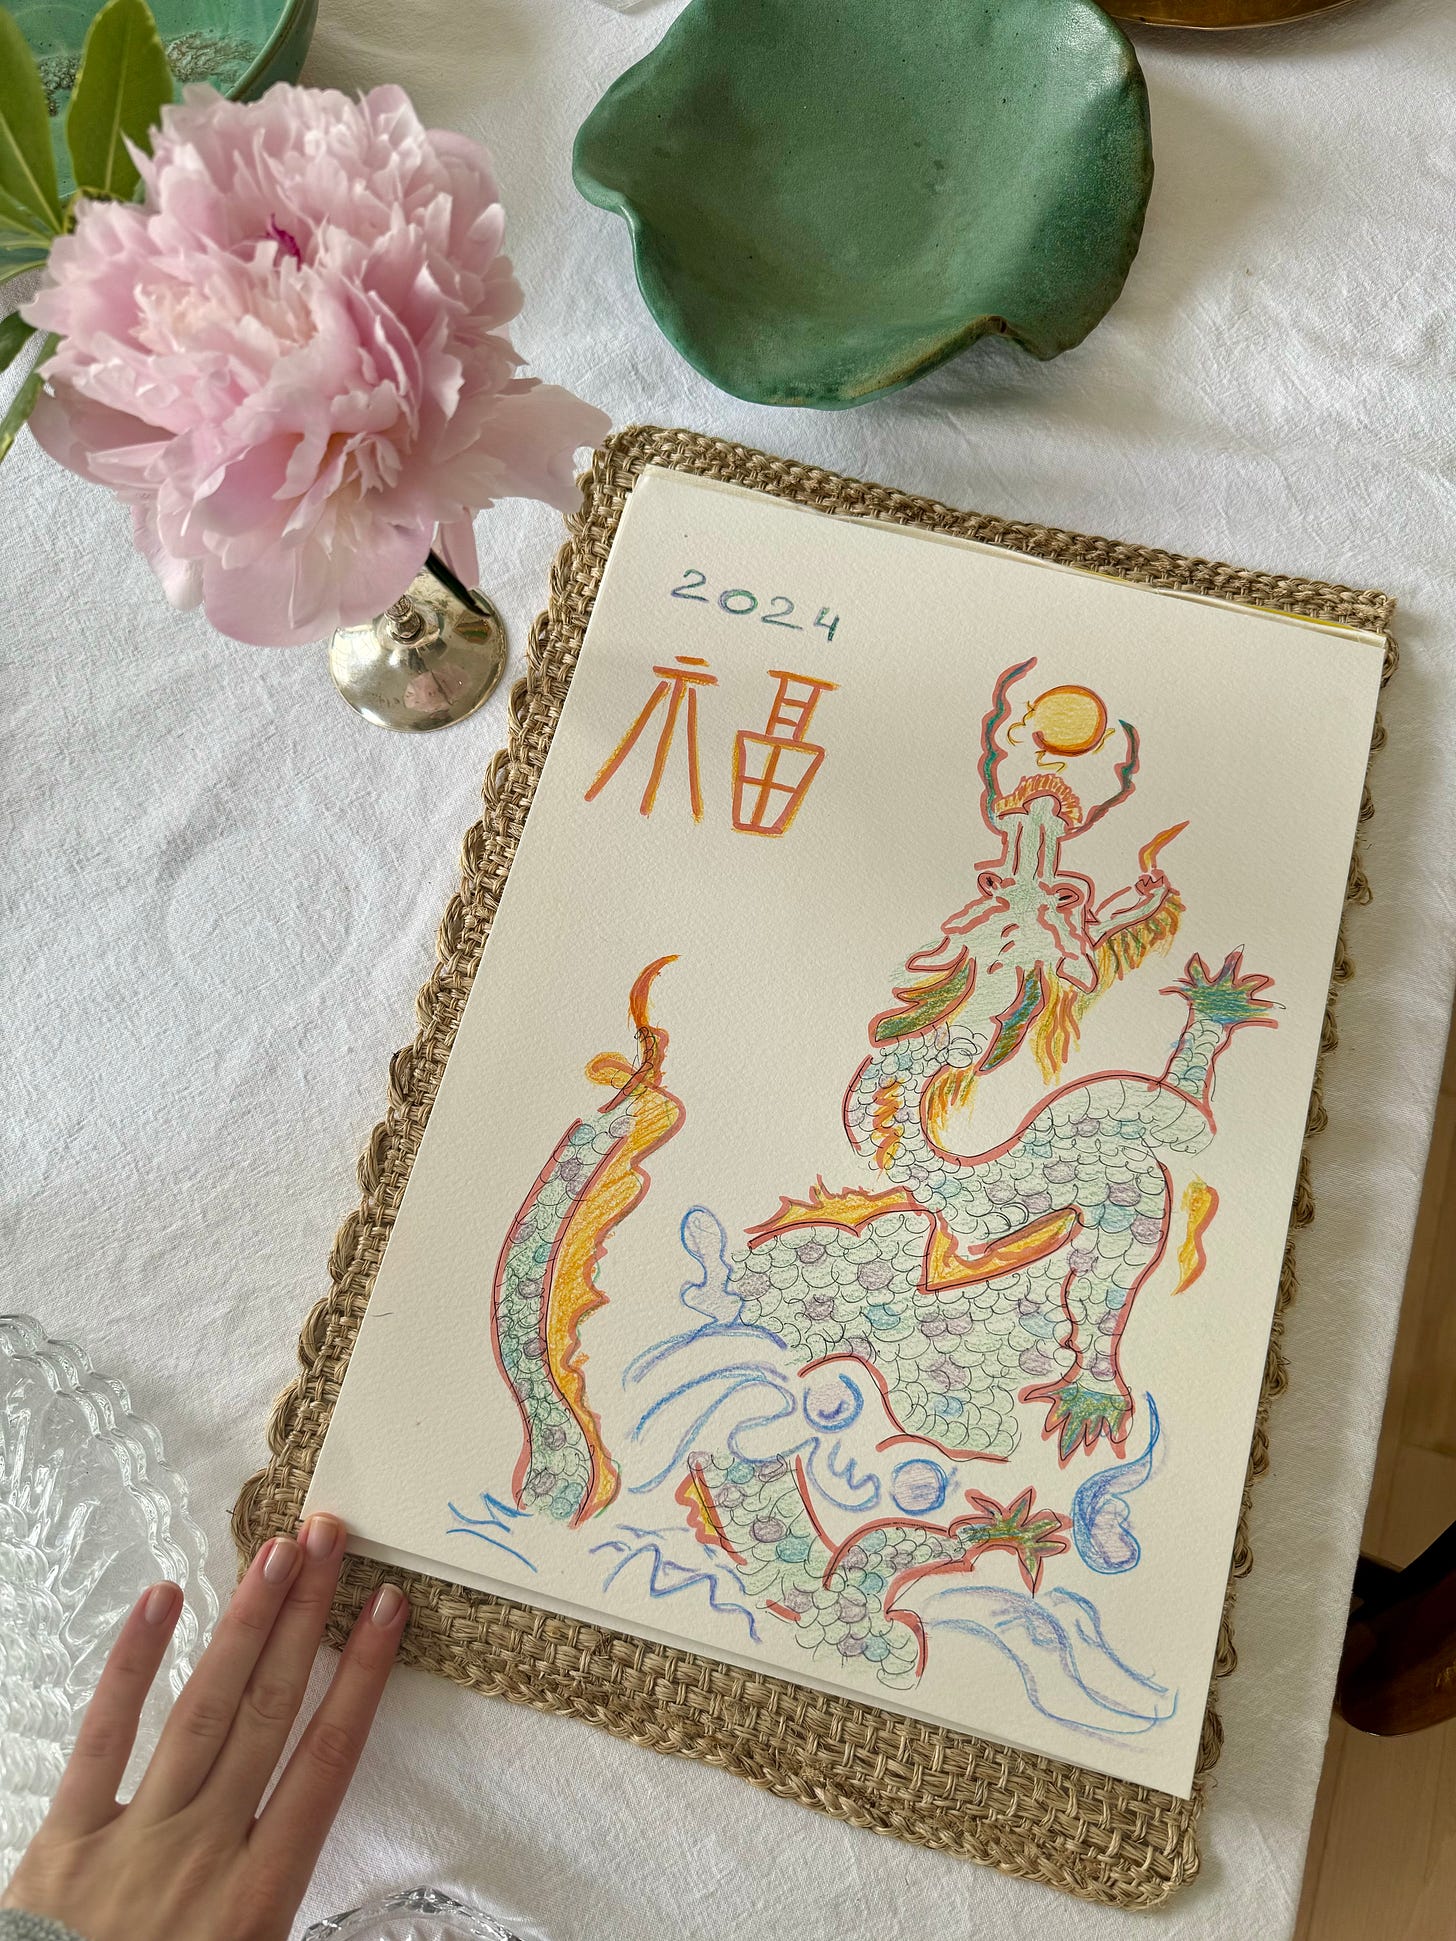 2024
福